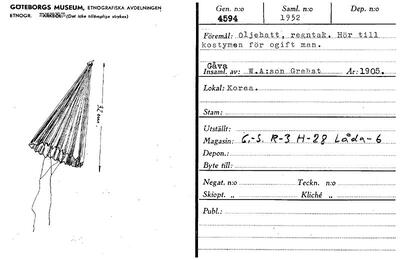 GÖTEBORGS MUSEUM, ETNOGRAFISKA AVDELNINGEN
ETNOGR. (Det icke tillämpliga strykes)
32 cm.
Gen. n:o
4594
Saml. n:o
1952
Dep. n:o
Föremål: Oljehatt, regntak. Hör till
kostymen för ogift man.
Gåva
Insaml. av: W.A:son Grebst År: 1905.
Lokal: Korea.
Stam:
Utställt:
Magasin: G.-S. R-3 H-28 Låda-6
Depon.:
Byte till:
Negat. n:o Teckn. n:o
Skiopt. „ Kliché „
Publ.: